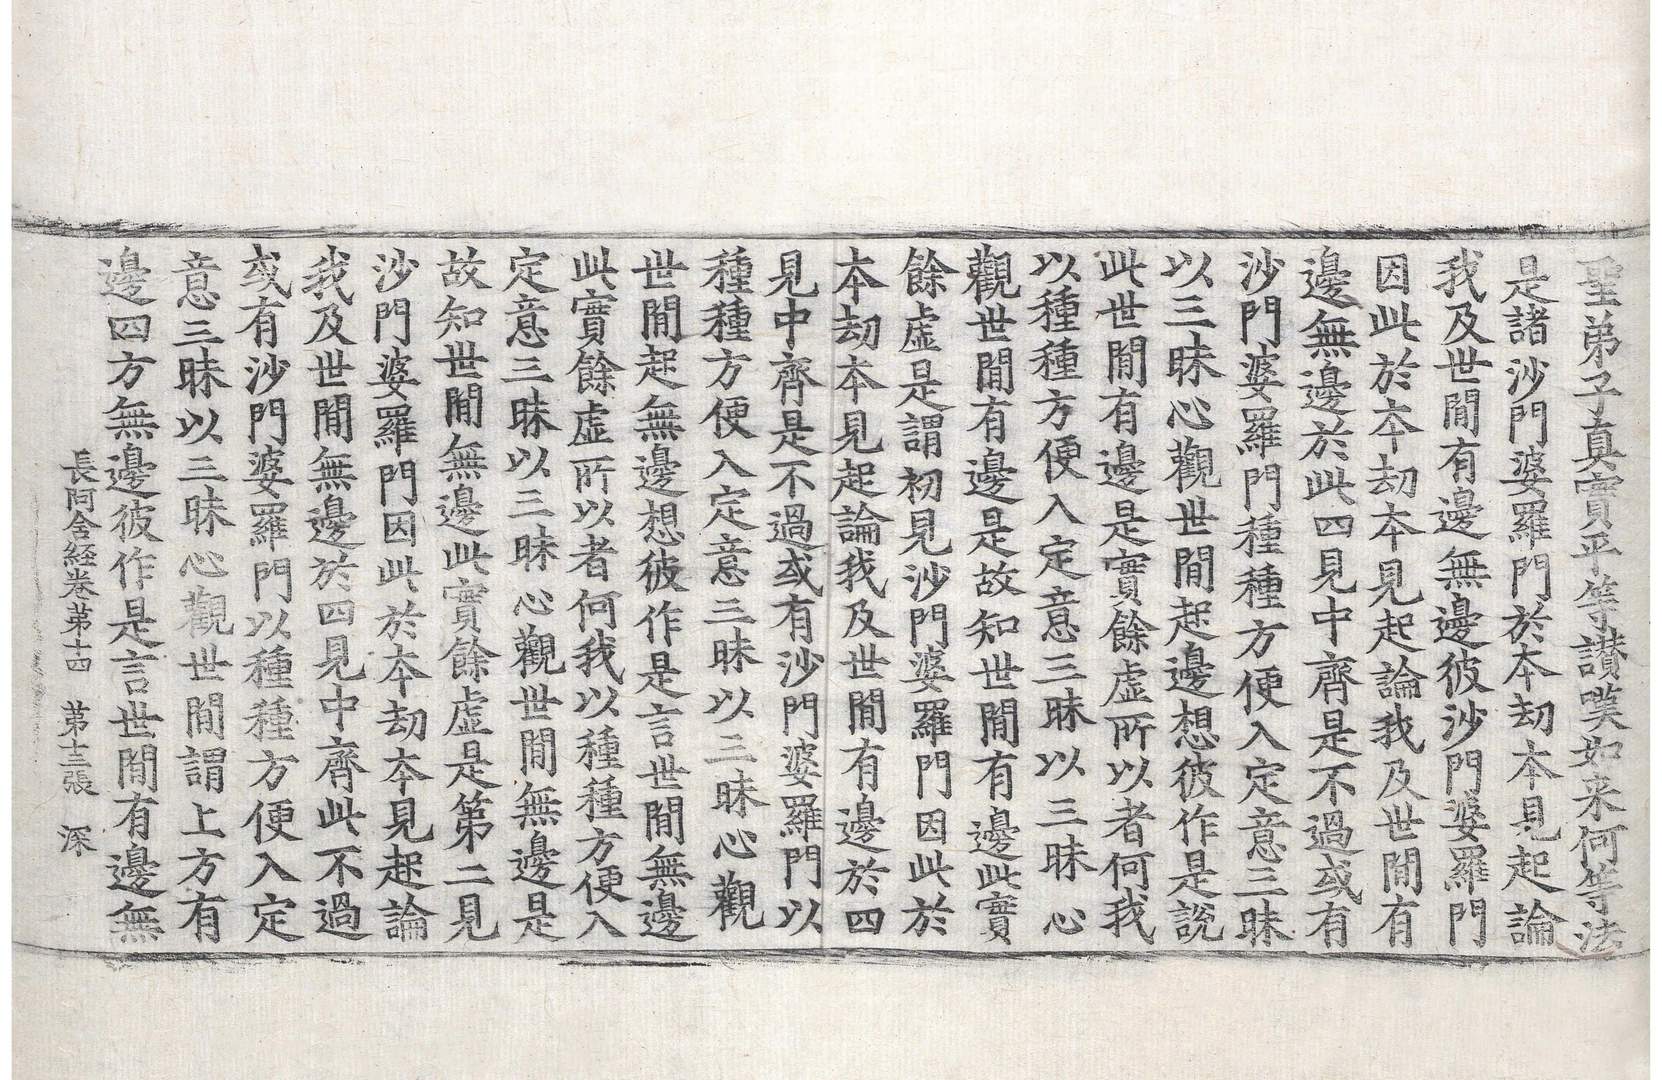 聖弟子真實平等讃嘆如来何等法
是諸沙門婆羅門於本劫本見起論
我及世間有邊無邊彼沙門婆羅門
因此於本劫本見起論我及世間有
邊無邊於此四見中齊是不過或有
沙門婆羅門種種方便入定意三昧
以三昧心觀世間起邊想彼作是說
此世間有邊是實餘虛所以者何我
以種種方便入定意三昧以三昧心
觀世間有邊是故知世間有邊此實
餘虛是謂初見沙門婆羅門因此於
本劫本見起論我及世間有邊於四
見中齊是不過或有沙門婆羅門以
種種方便入定意三昧以三昧心觀
世間起無邊想彼作是言世間無邊
此實餘虛所以者何我以種種方便入
定意三昧以三昧心觀世間無邊是
故知世間無邊此實餘虛是第二見
沙門婆羅門因此於本劫本見起論
我及世間無邊於四見中齊此不過
或有沙門婆羅門以種種方便入定
意三昧以三昧心觀世間謂上方有
邊四方無邊彼作是言世間有邊無
長阿含経巻第十四 第十三張 深